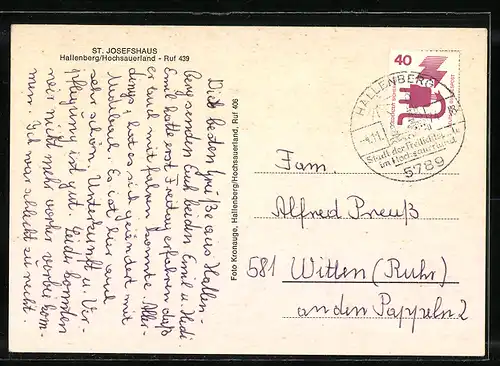 ST. JOSEFSHAUS
Hallenberg/Hochsauerland - Ruf 439
Die besten Grüße aus Hallen-
berg senden Euch beiden Emil u. Hedi
Emil hatte erst Freitag erfahren daß
er auch mitfahren konnte. Aller-
dings hat es sich geändert mit
Urlaub. Es ist hier auch
sehr schön. Unterkunft u. Ver-
pflegung ist gut. Leider konnten
wir nicht mehr vorher vorbei kom-
men. Ich war schlecht zu recht.
Foto Kronauge, Hallenberg/Hochsauerland, Ruf 406
40
HALLENBERG
Stadt der Freilichtbühne
im Hochsauerland
5789
Fam.
Alfred Preuß
581 Witten (Ruhr)
an den Pappeln 2